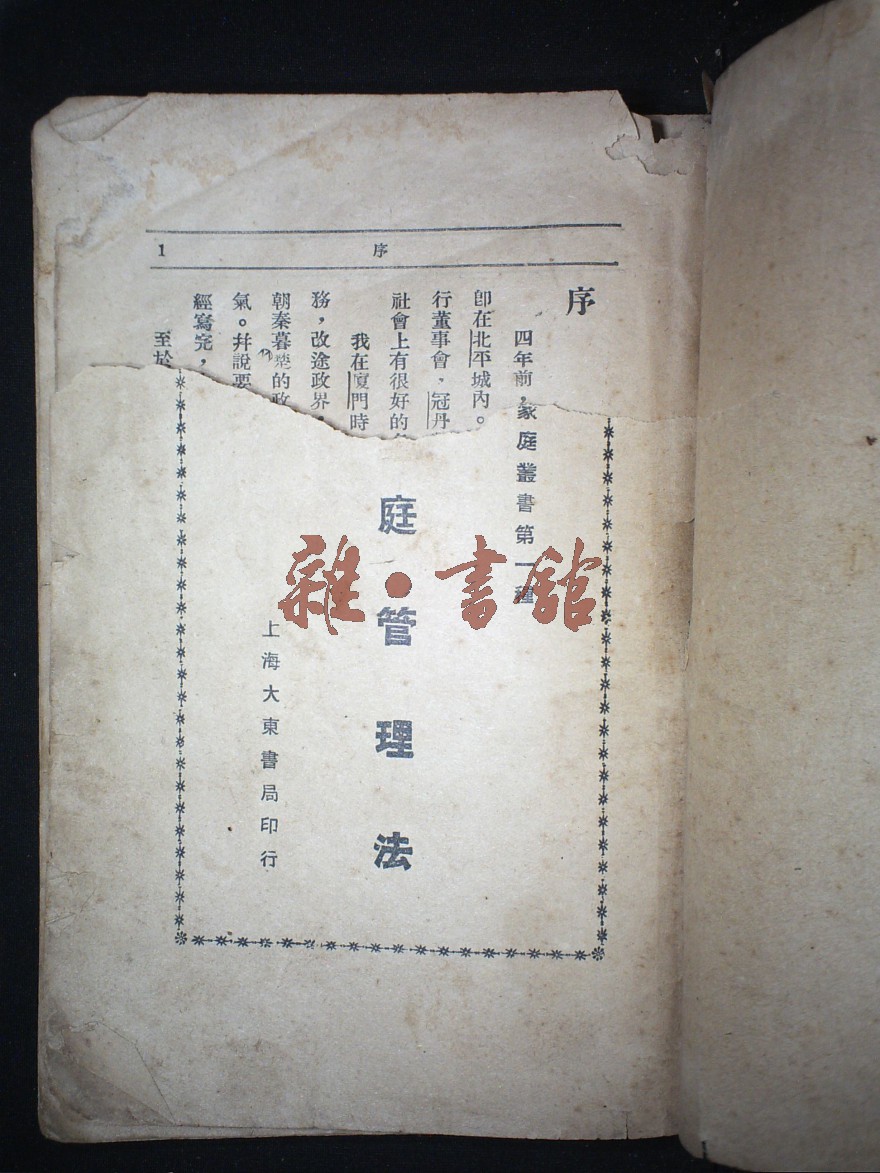 1 序
序
四年前，
卽在北平城內。
行董事會，冠丹
社會上有很好的
我在廈門時
務，改途政界，
朝秦暮楚的政
氣。幷說要
經寫完，
至於
家庭叢書第一種
庭管理法
上海大東書局印行
雜·書館